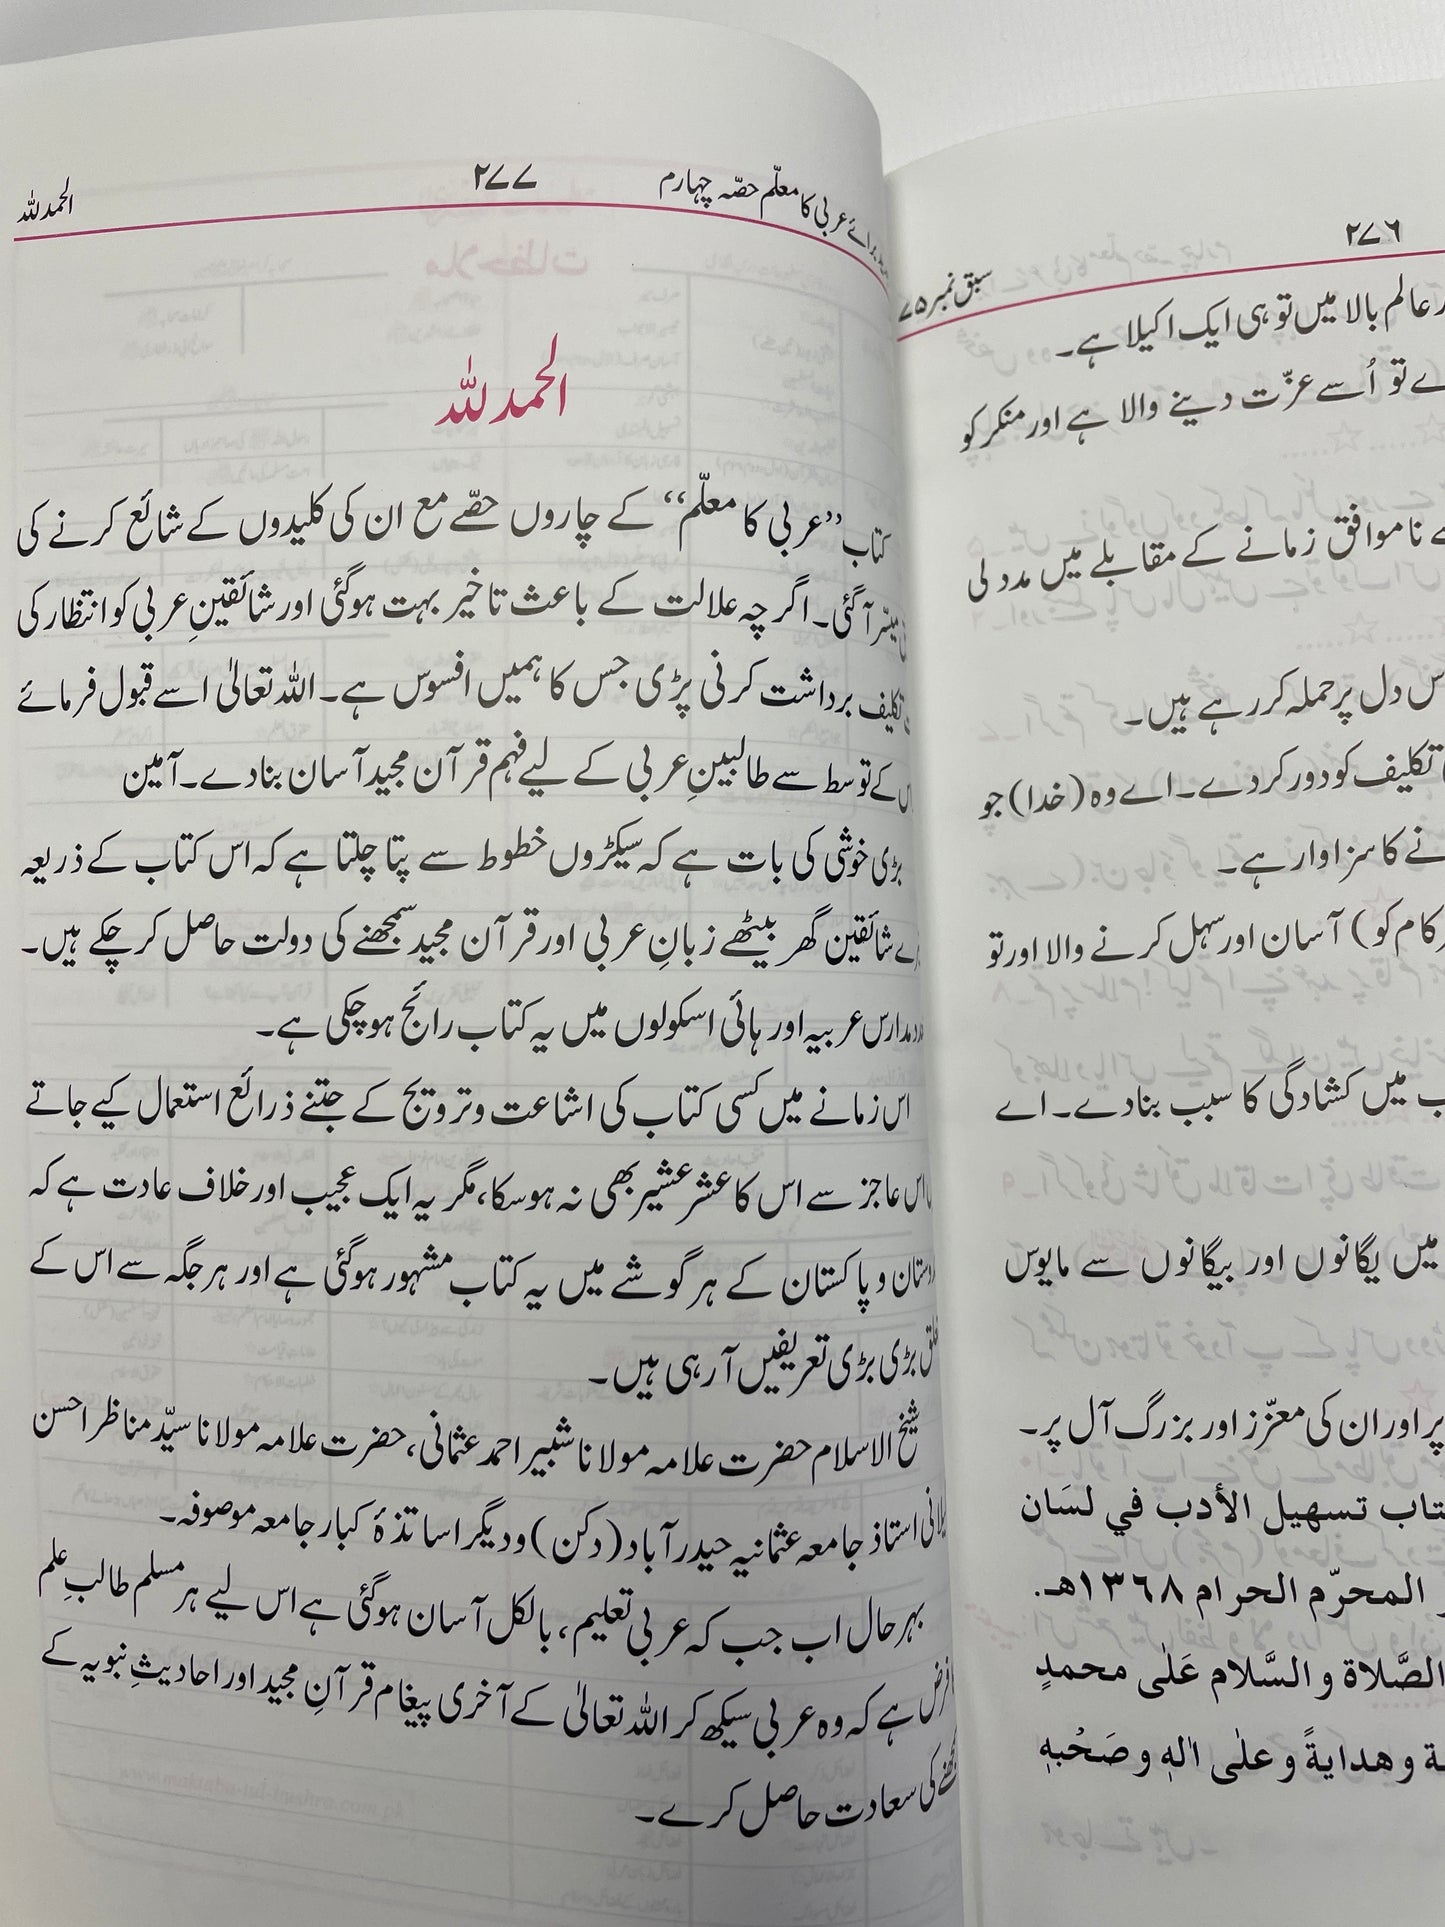 ۲۷۶
سبق نمبر ۷۵
عالم بالا میں تو ہی ایک اکیلا ہے۔
تو اُسے عزّت دینے والا ہے اور منکر کو
نا موافق زمانے کے مقابلے میں مدد لی
دل پر حملہ کر رہے ہیں۔
تکلیف کو دور کردے۔ اے وہ (خدا) جو
کا سزاوار ہے۔
کام کو) آسان اور سہل کرنے والا اور تو
میں کشادگی کا سبب بنادے۔ اے
میں یگانوں اور بیگانوں سے مایوس
پر اور ان کی معزّز اور بزرگ آل پر۔
تسهيل الأدب في لسَان
المحرّم الحرام ١٣٦٨هـ.
الصَّلاة و السَّلام عَلٰى محمدٍ
و هدايةً و علٰى اٰلهٖ و صَحْبهٖ
عربی کا معلّم حصّہ چہارم
۲۷۷
الحمد للہ
الحمد للہ
کتاب ”عربی کا معلّم“ کے چاروں حصّے مع ان کی کلیدوں کے شائع کرنے کی
میسّر آگئی۔ اگرچہ علالت کے باعث تاخیر بہت ہوگئی اور شائقینِ عربی کو انتظار کی
تکلیف برداشت کرنی پڑی جس کا ہمیں افسوس ہے۔ اللہ تعالیٰ اسے قبول فرمائے
کے توسط سے طالبینِ عربی کے لیے فہم قرآن مجید آسان بنادے۔ آمین
بڑی خوشی کی بات ہے کہ سیکڑوں خطوط سے پتا چلتا ہے کہ اس کتاب کے ذریعہ
شائقین گھر بیٹھے زبانِ عربی اور قرآن مجید سمجھنے کی دولت حاصل کرچکے ہیں۔
مدارس عربیہ اور ہائی اسکولوں میں یہ کتاب رائج ہوچکی ہے۔
اس زمانے میں کسی کتاب کی اشاعت و ترویج کے جتنے ذرائع استعمال کیے جاتے
اس عاجز سے اس کا عشر عشیر بھی نہ ہوسکا، مگر یہ ایک عجیب اور خلاف عادت ہے کہ
و پاکستان کے ہر گوشے میں یہ کتاب مشہور ہوگئی ہے اور ہر جگہ سے اس کے
بڑی بڑی تعریفیں آرہی ہیں۔
شیخ الاسلام حضرت علامہ مولانا شبیر احمد عثمانی، حضرت علامہ مولانا سیّد مناظر احسن
استاذ جامعہ عثمانیہ حیدر آباد (دکن) و دیگر اساتذۂ کبار جامعہ موصوفہ۔
بہرحال اب جب کہ عربی تعلیم، بالکل آسان ہوگئی ہے اس لیے ہر مسلم طالبِ علم
فرض ہے کہ وہ عربی سیکھ کر اللہ تعالیٰ کے آخری پیغام قرآنِ مجید اور احادیثِ نبویہ کے
کی سعادت حاصل کرے۔